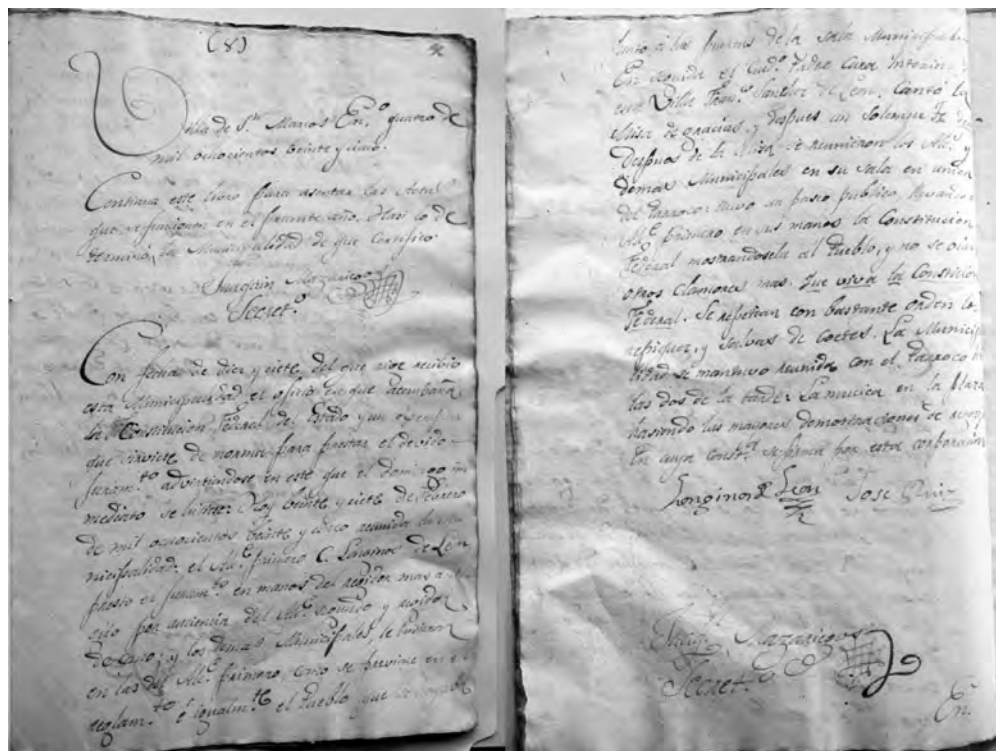 (8)
Villa de Sn. Marcos En.o quatro de
mil ochocientos beinte y cinco.
Continua este libro para asentar las Actas
que se funcionen en el presente año. Haci lo de
termino la Municipalidad de que Certifico
Juaquin Mazariegos
Secret.o
Con fecha de diez y ciete del que rixe recibio
esta Municipalidad el oficio en que acompaña
la Constitucion Federal del Estado y un exemplar
que sirviese de norma para prestar el devido
juram.to advirtiendose en este que el domingo in
mediato se hisiese. Hoy beinte y ciete de Febrero
de mil ochocientos beinte y cinco reunida la mu
nicipalidad: el Alc.e primero C. Longinos de Leon
presto el juram.to en manos del regidor mas anti
guo por ausencia del Alc.e segundo y regidor
decano; y los demas Municipales, le hisieron
en las del Alc.e primero, como se previene en el
reglam.to e igualm.te el Pueblo que
junto á las puertas de la sala Municipal.
En seguida el Ciud.o Padre Cura Interino
esta Villa Fran.co Sanches de Leon. Cantó la
Misa de gracias, y despues un solemne Te De
Despues de la Misa se reunieron los Alc.s y
demas Municipales en su sala en union
del Parroco: huvo un paseo publico llevando
Alc.e primero en sus manos la Constitucion
Federal mostrandosela al Pueblo, y no se oian
otros clamores mas. Que viva la Constitucion
Federal. Se repetian con bastante orden los
repiques, y salvas de coetes. La Municipa
lidad se mantuvo reunida con el Parroco
las dos de la tarde: La musica en la Plaza
hasiendo las mayores demostraciones de regosi
En cuya const.a se firma por esta corporacion
Longinos de Leon Jose Ruiz
Juaq.n Mazariegos
Secret.o
En.